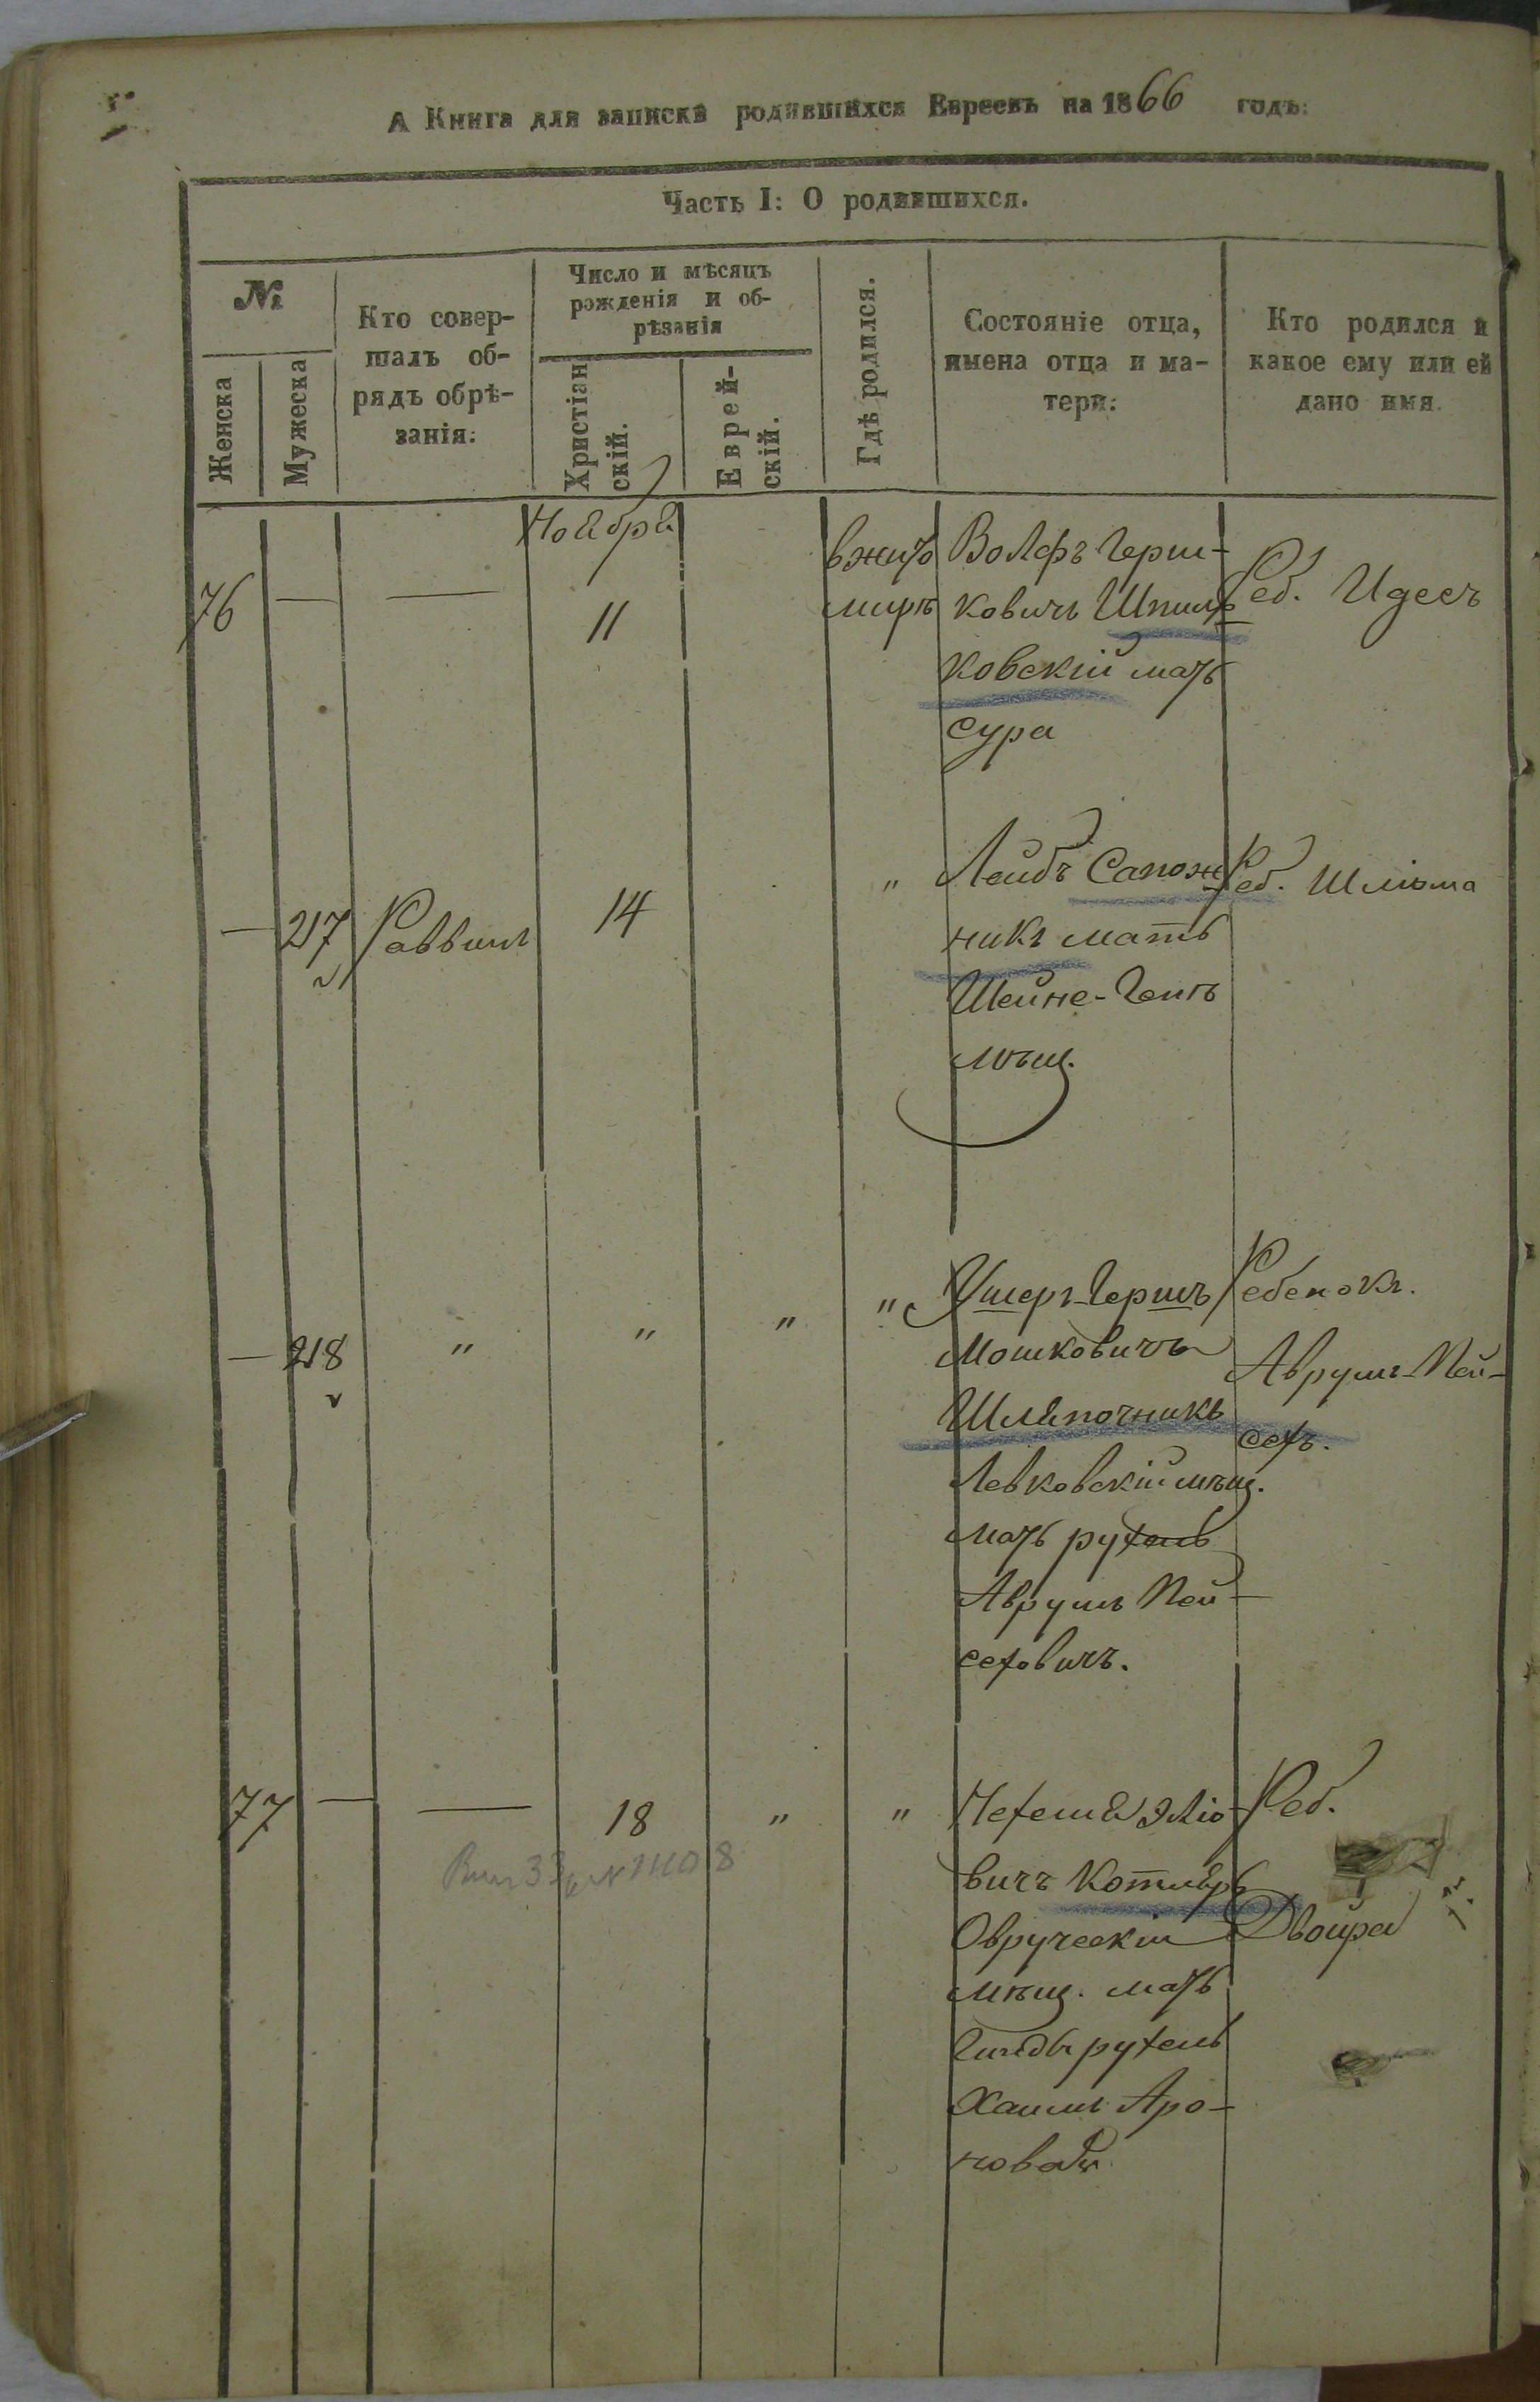 А Книга для записки родившихся Евреевъ на 1866 годъ:
Часть I: О родившихся.
№
Женска
Мужеска
Кто совер-
шалъ об-
рядъ обрѣ-
занія:
Число и мѣсяцъ
рожденія и об-
рѣзанія
Христіан
скій.
Еврей-
скій.
Гдѣ родился.
Состояніе отца,
имена отца и ма-
тери:
Кто родился и
какое ему или ей
дано имя.
Ноября
76 — — 11
вжито
мирѣ
Волфъ Герш-
ковичъ Шпиль
ковскій мать
сура
Реб. Идесъ
— 217 Раввинъ 14 "
Лейбъ Сапож-
никъ мать
Шейне-Гене
мѣщ.
Реб. Шлiома
— 218 " " " "
Ушеръ-Гершъ
Мошковичъ
Шляпочникъ
Левковскій мѣщ.
мать рухель
Аврумъ Пей-
сеховичъ.
Ребенокъ.
Аврумъ-Пей-
сехъ.
77 — — 18 " "
Нехемя Эліо-
вичъ Котляръ
Овруческій
мѣщ. мать
Гинда рухель
Хаимъ Аро-
новая
Реб.
Двойра